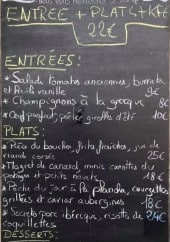 ENTREE + PLATS + Kfé
22€
ENTRÉES:
* Salade tomates anciennes, burrata
et huile vanille 9€
* Champignons à la grecque 8€
* Oeuf poulet, girolles d'été 10€
PLATS:
* Pièce du boucher, frites fraîches, jus de
viande corsé 25€
* Magret de canard, minis carottes du
potager et petits navets 18€
* Pêche du jour à la plancha, courgettes
grillées et caviar aubergines 18€
* Secreto porc ibérique, risotto de
coquillettes 24€
DESSERTS: